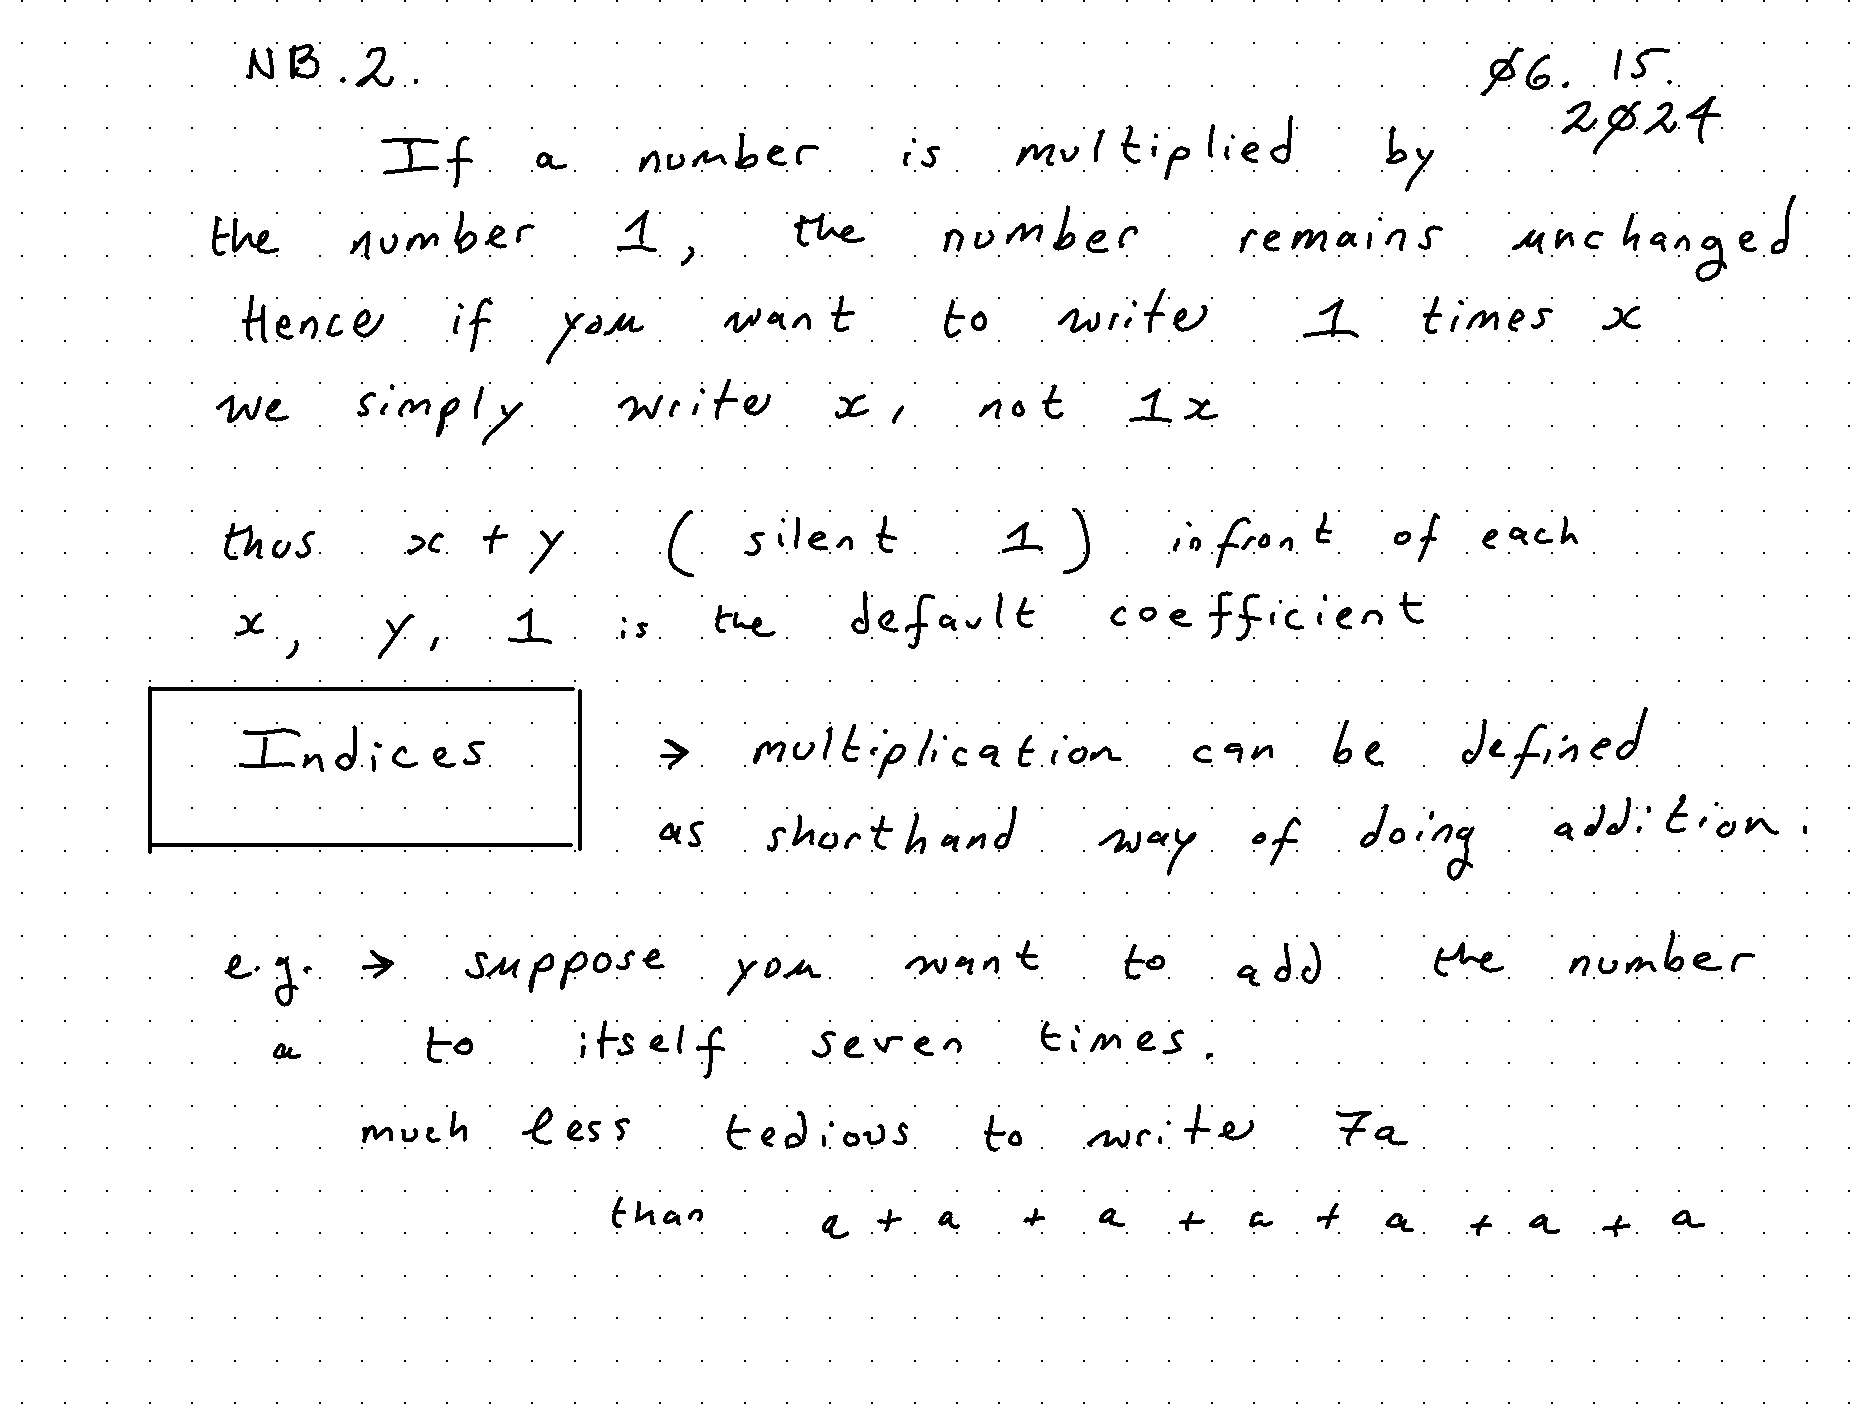 NB.2.
Ø6. 15.
2Ø24
If a number is multiplied by
the number 1, the number remains unchanged
Hence if you want to write 1 times x
we simply write x, not 1x
thus x + y ( silent 1 ) infront of each
x, y, 1 is the default coefficient
Indices → multiplication can be defined
as shorthand way of doing addition.
e.g. → suppose you want to add the number
a to itself seven times.
much less tedious to write 7a
than a + a + a + a + a + a + a